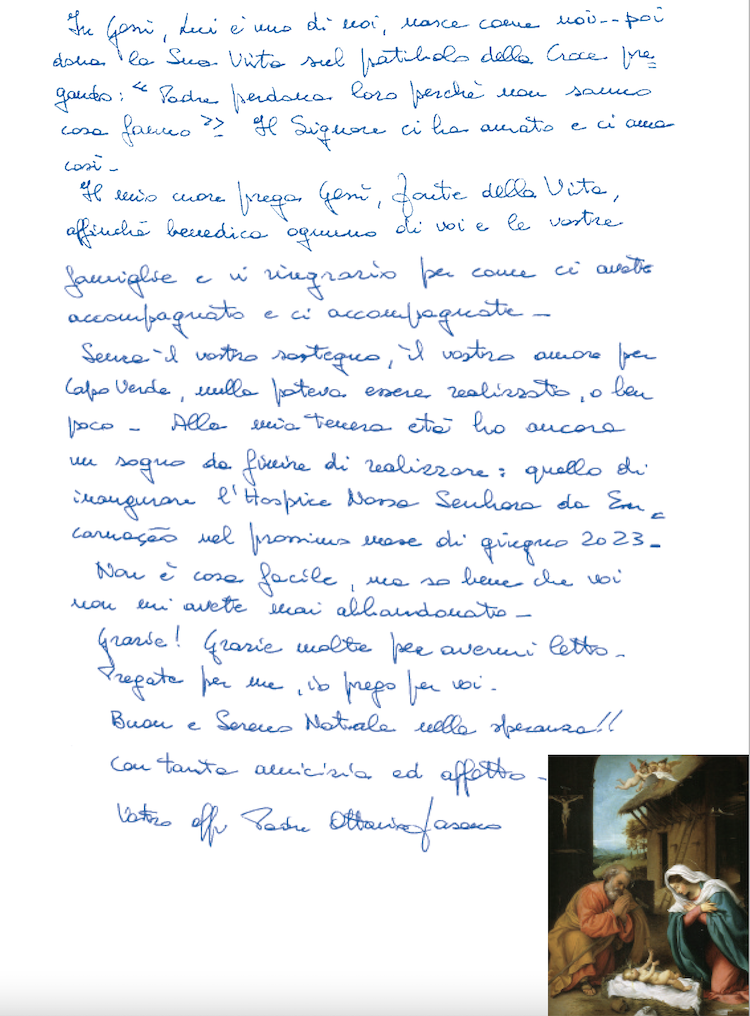 In Gesù, Lui è uno di noi, nasce come noi -- poi
dona la Sua Vita sul patibolo della Croce pre=
gando: "Padre perdona loro perchè non sanno
cosa fanno" Il Signore ci ha amato e ci ama
così -
Il mio cuore prega Gesù, fonte della Vita,
affinchè benedica ognuno di voi e le vostre
famiglie e vi ringrazio per come ci avete
accompagnato e ci accompagnate -
Senza il vostro sostegno, il vostro amore per
Capo Verde, nulla poteva essere realizzato, o ben
poco - Alla mia tenera età ho ancora
un sogno da finire di realizzare: quello di
inaugurare l'Hospice Nossa Senhora da En=
carnação nel prossimo mese di giugno 2023 -
Non è cosa facile, ma so bene che voi
non mi avete mai abbandonato -
Grazie! Grazie molte per avermi letto -
Pregate per me, io prego per voi -
Buon e Sereno Natale nella speranza!!
Con tanta amicizia ed affetto -
Vostro aff. Padre Ottavio Fasano